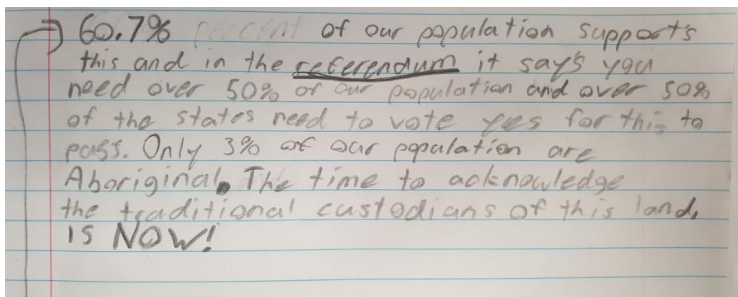 60.7% percent of our population supports
this and in the referendum it say's you
need over 50% of our population and over 50%
of the states need to vote yes for this to
pass. Only 3% of our population are
Aboriginal. The time to acknowledge
the traditional custodians of this land,
IS NOW!